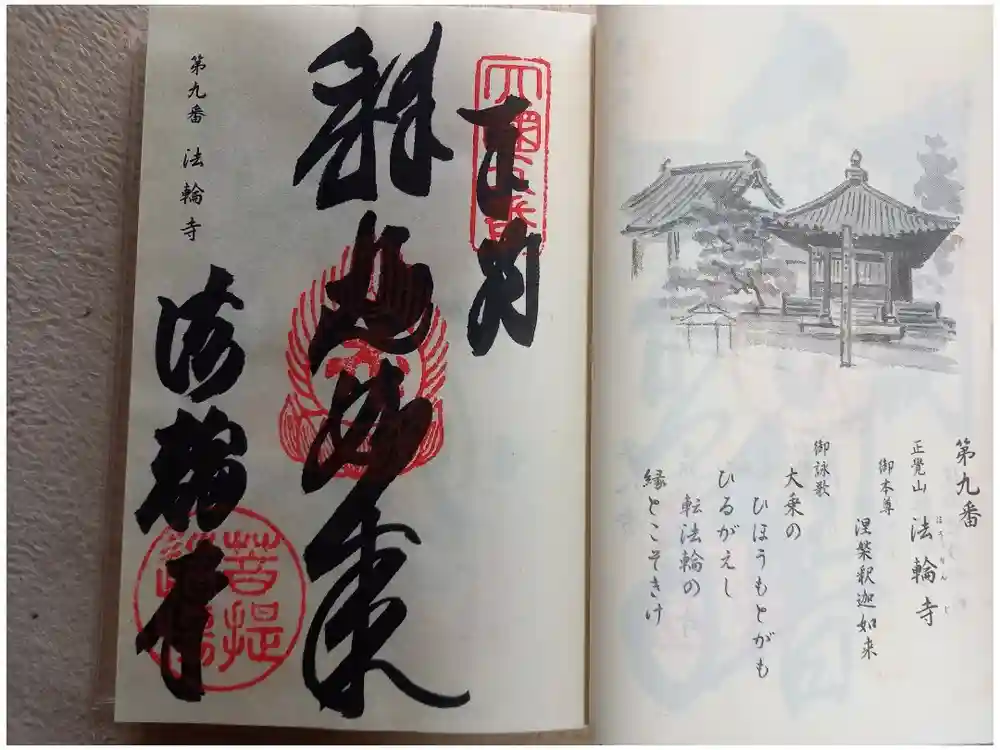 第九番
正覺山 法輪寺
ほうりんじ
御本尊
涅槃釈迦如来
御詠歌
大乗の
ひほうもとがも
ひるがえし
転法輪の
縁とこそきけ
奉納
釈迦如来
法輪寺
第九番 法輪寺